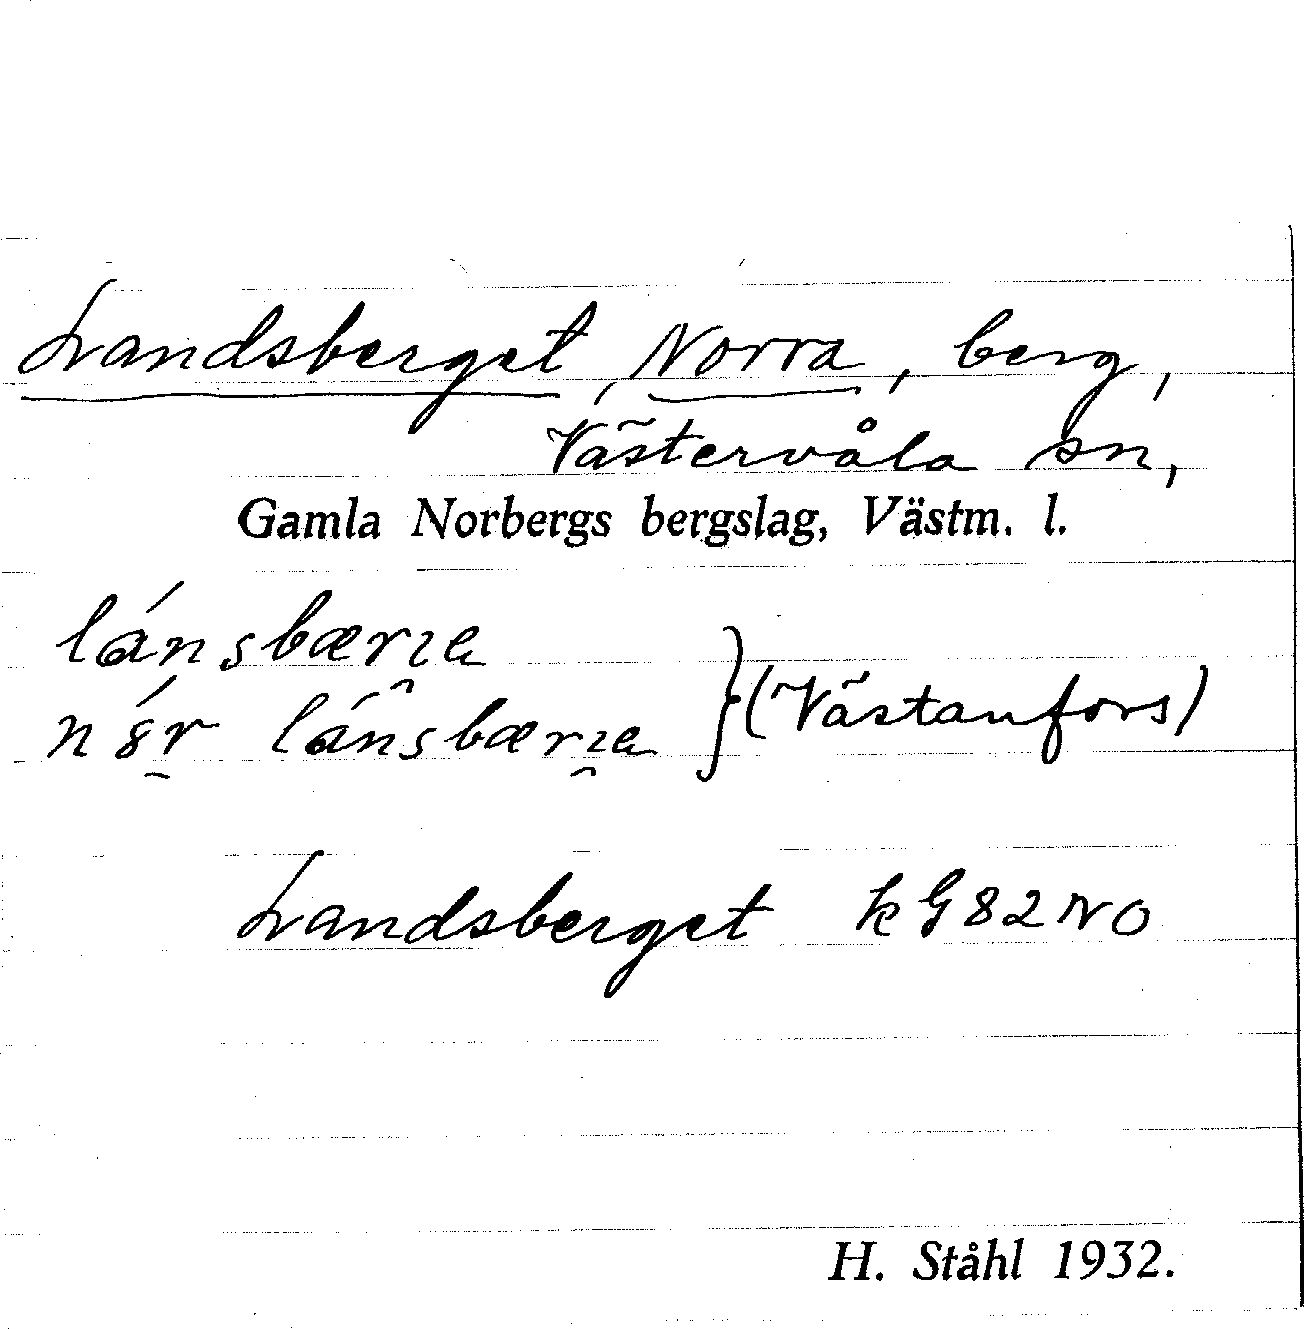 Landsberget, Norra, berg,
Västervåla sn,
Gamla Norbergs bergslag, Västm. l.
lánsbærɩa
nór lánsbærɩa } (Västanfors)
Landsberget kG82NO
H. Ståhl 1932.